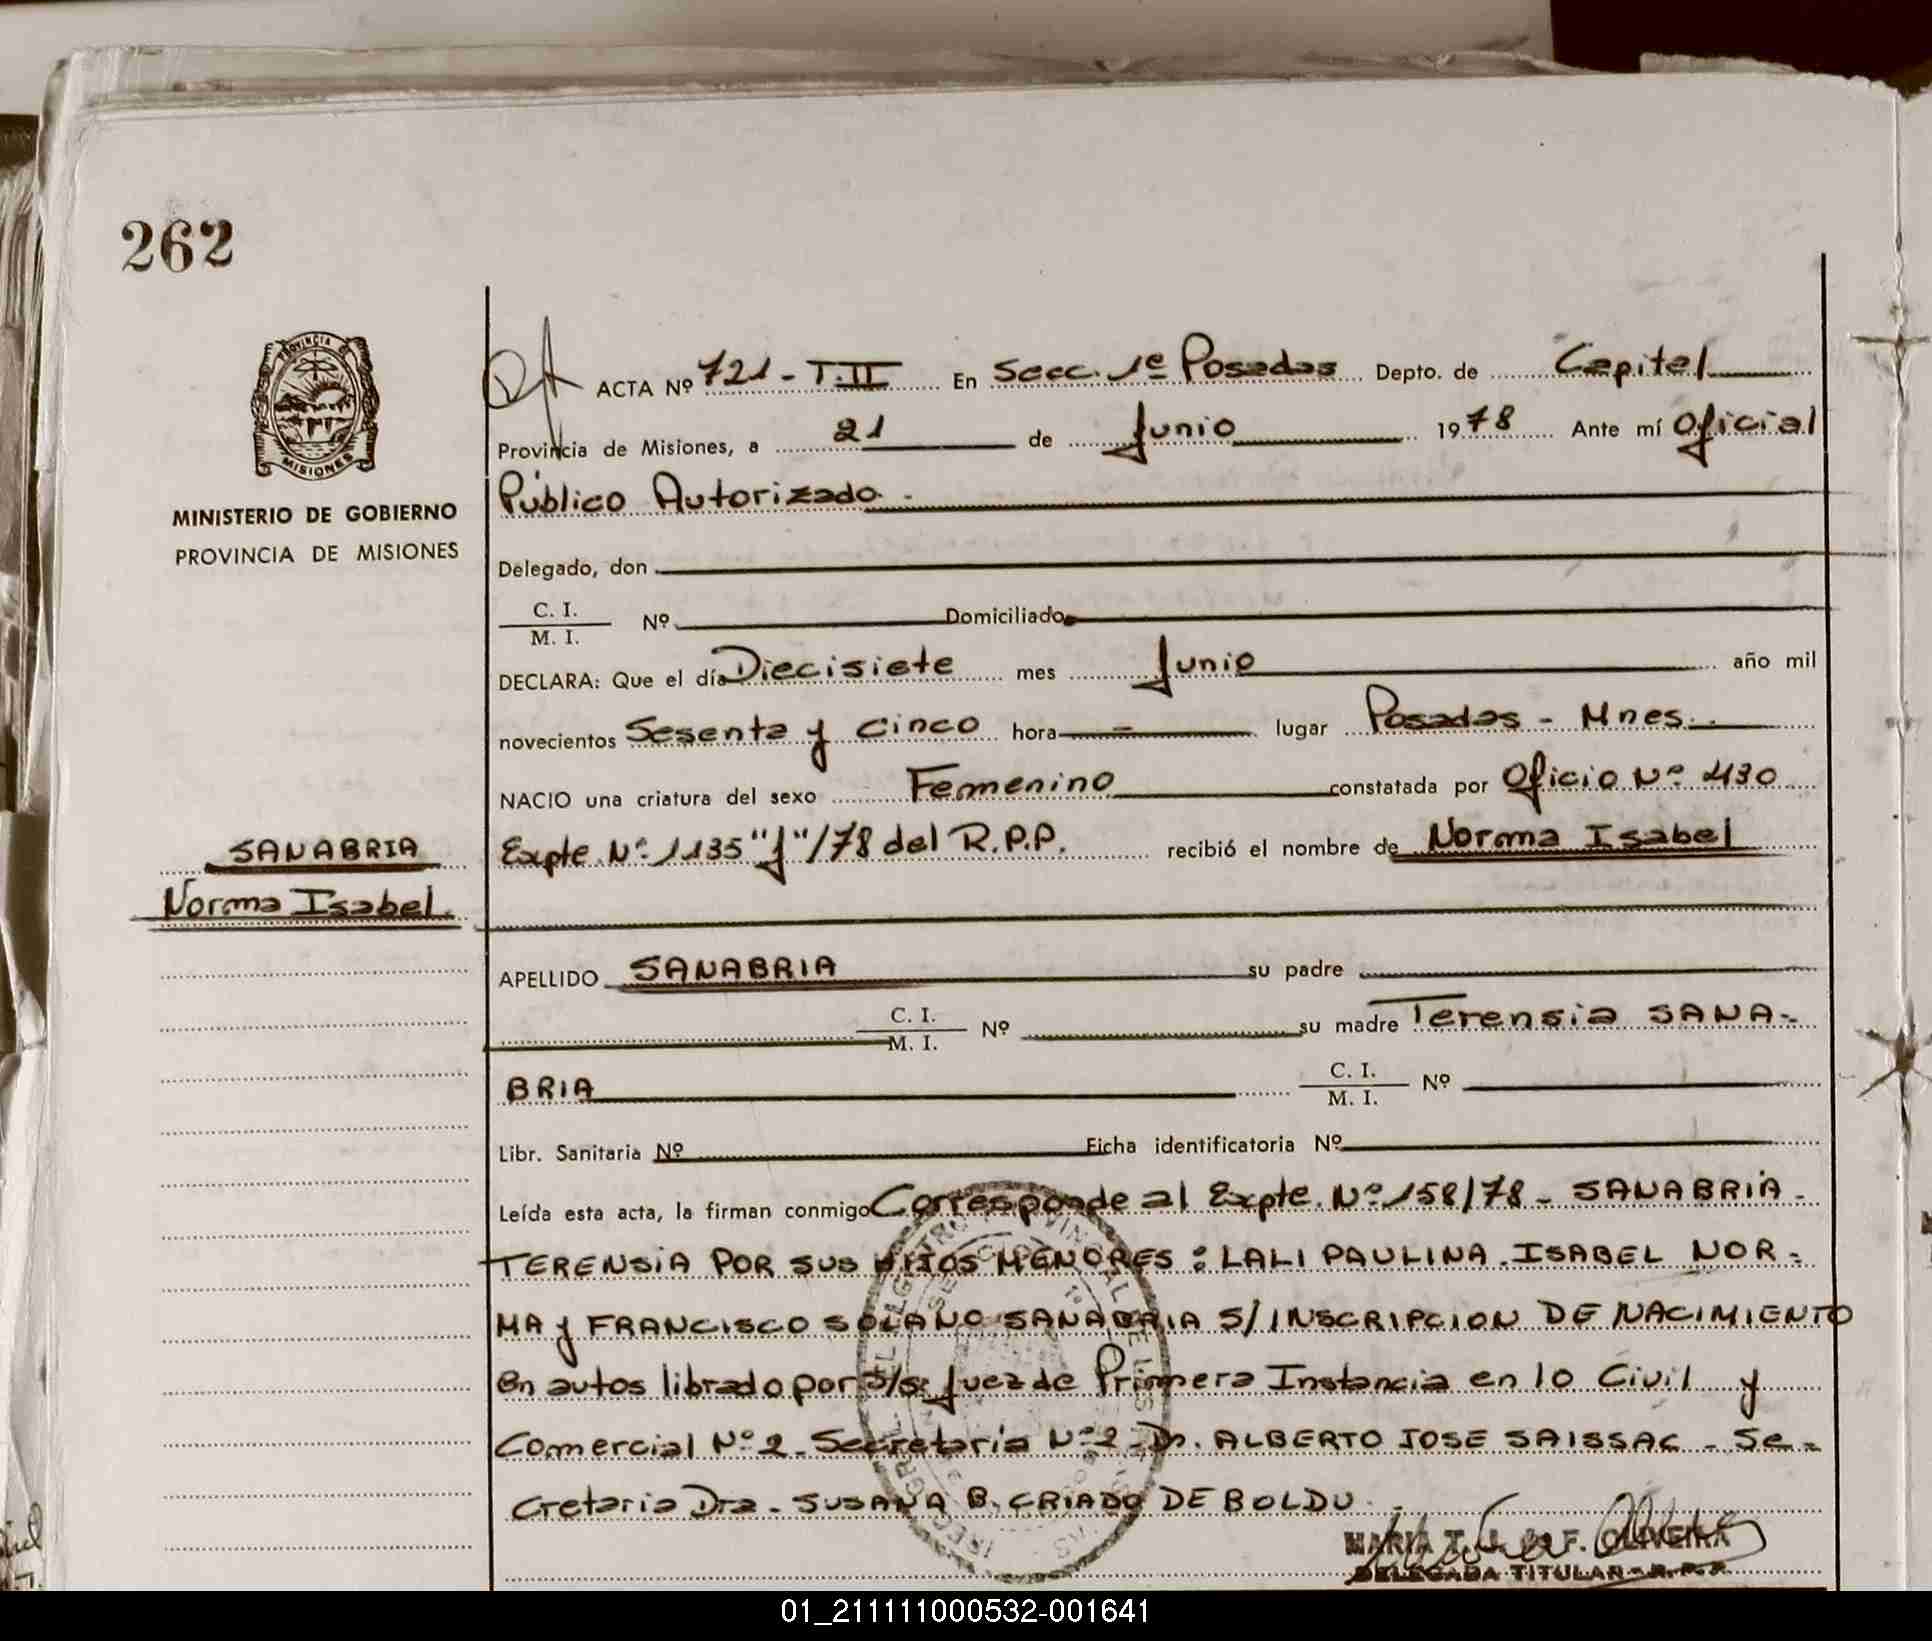 262
PROVINCIA DE
MISIONES
MINISTERIO DE GOBIERNO
PROVINCIA DE MISIONES
ACTA Nº 721 - T.II En Secc. 1ª Posadas Depto. de Capital
Provincia de Misiones, a 21 de Junio 1978 Ante mí Oficial
Público Autorizado.
Delegado, don
C. I.
M. I. Nº Domiciliado
DECLARA: Que el día Diecisiete mes Junio año mil
novecientos Sesenta y Cinco hora - lugar Posadas - Mnes.
NACIO una criatura del sexo Femenino constatada por Oficio Nº 430
Expte. Nº 1135 "J"/78 del R.P.P. recibió el nombre de Norma Isabel
SANABRIA
Norma Isabel
APELLIDO SANABRIA su padre
C. I.
M. I. Nº su madre Terensia SANA-
BRIA C. I.
M. I. Nº
Libr. Sanitaria Nº Ficha identificatoria Nº
Leída esta acta, la firman conmigo Corresponde al Expte. Nº 158/78 - SANABRIA -
TERENSIA POR SUS HIJOS MENORES: LALI PAULINA. ISABEL NOR-
MA y FRANCISCO SOLANO SANABRIA S/ INSCRIPCION DE NACIMIENTO
en autos librado por S/Sª Juez de Primera Instancia en lo Civil y
Comercial Nº 2 - Secretaría Nº 2 - Dr. ALBERTO JOSE SAISSAC - Se-
cretaria Dra. SUSANA B. CRIADO DE BOLDU.
MARIA T. J. de F. OLIVEIRA
DELEGADA TITULAR - R.P.P.
01_211111000532-001641